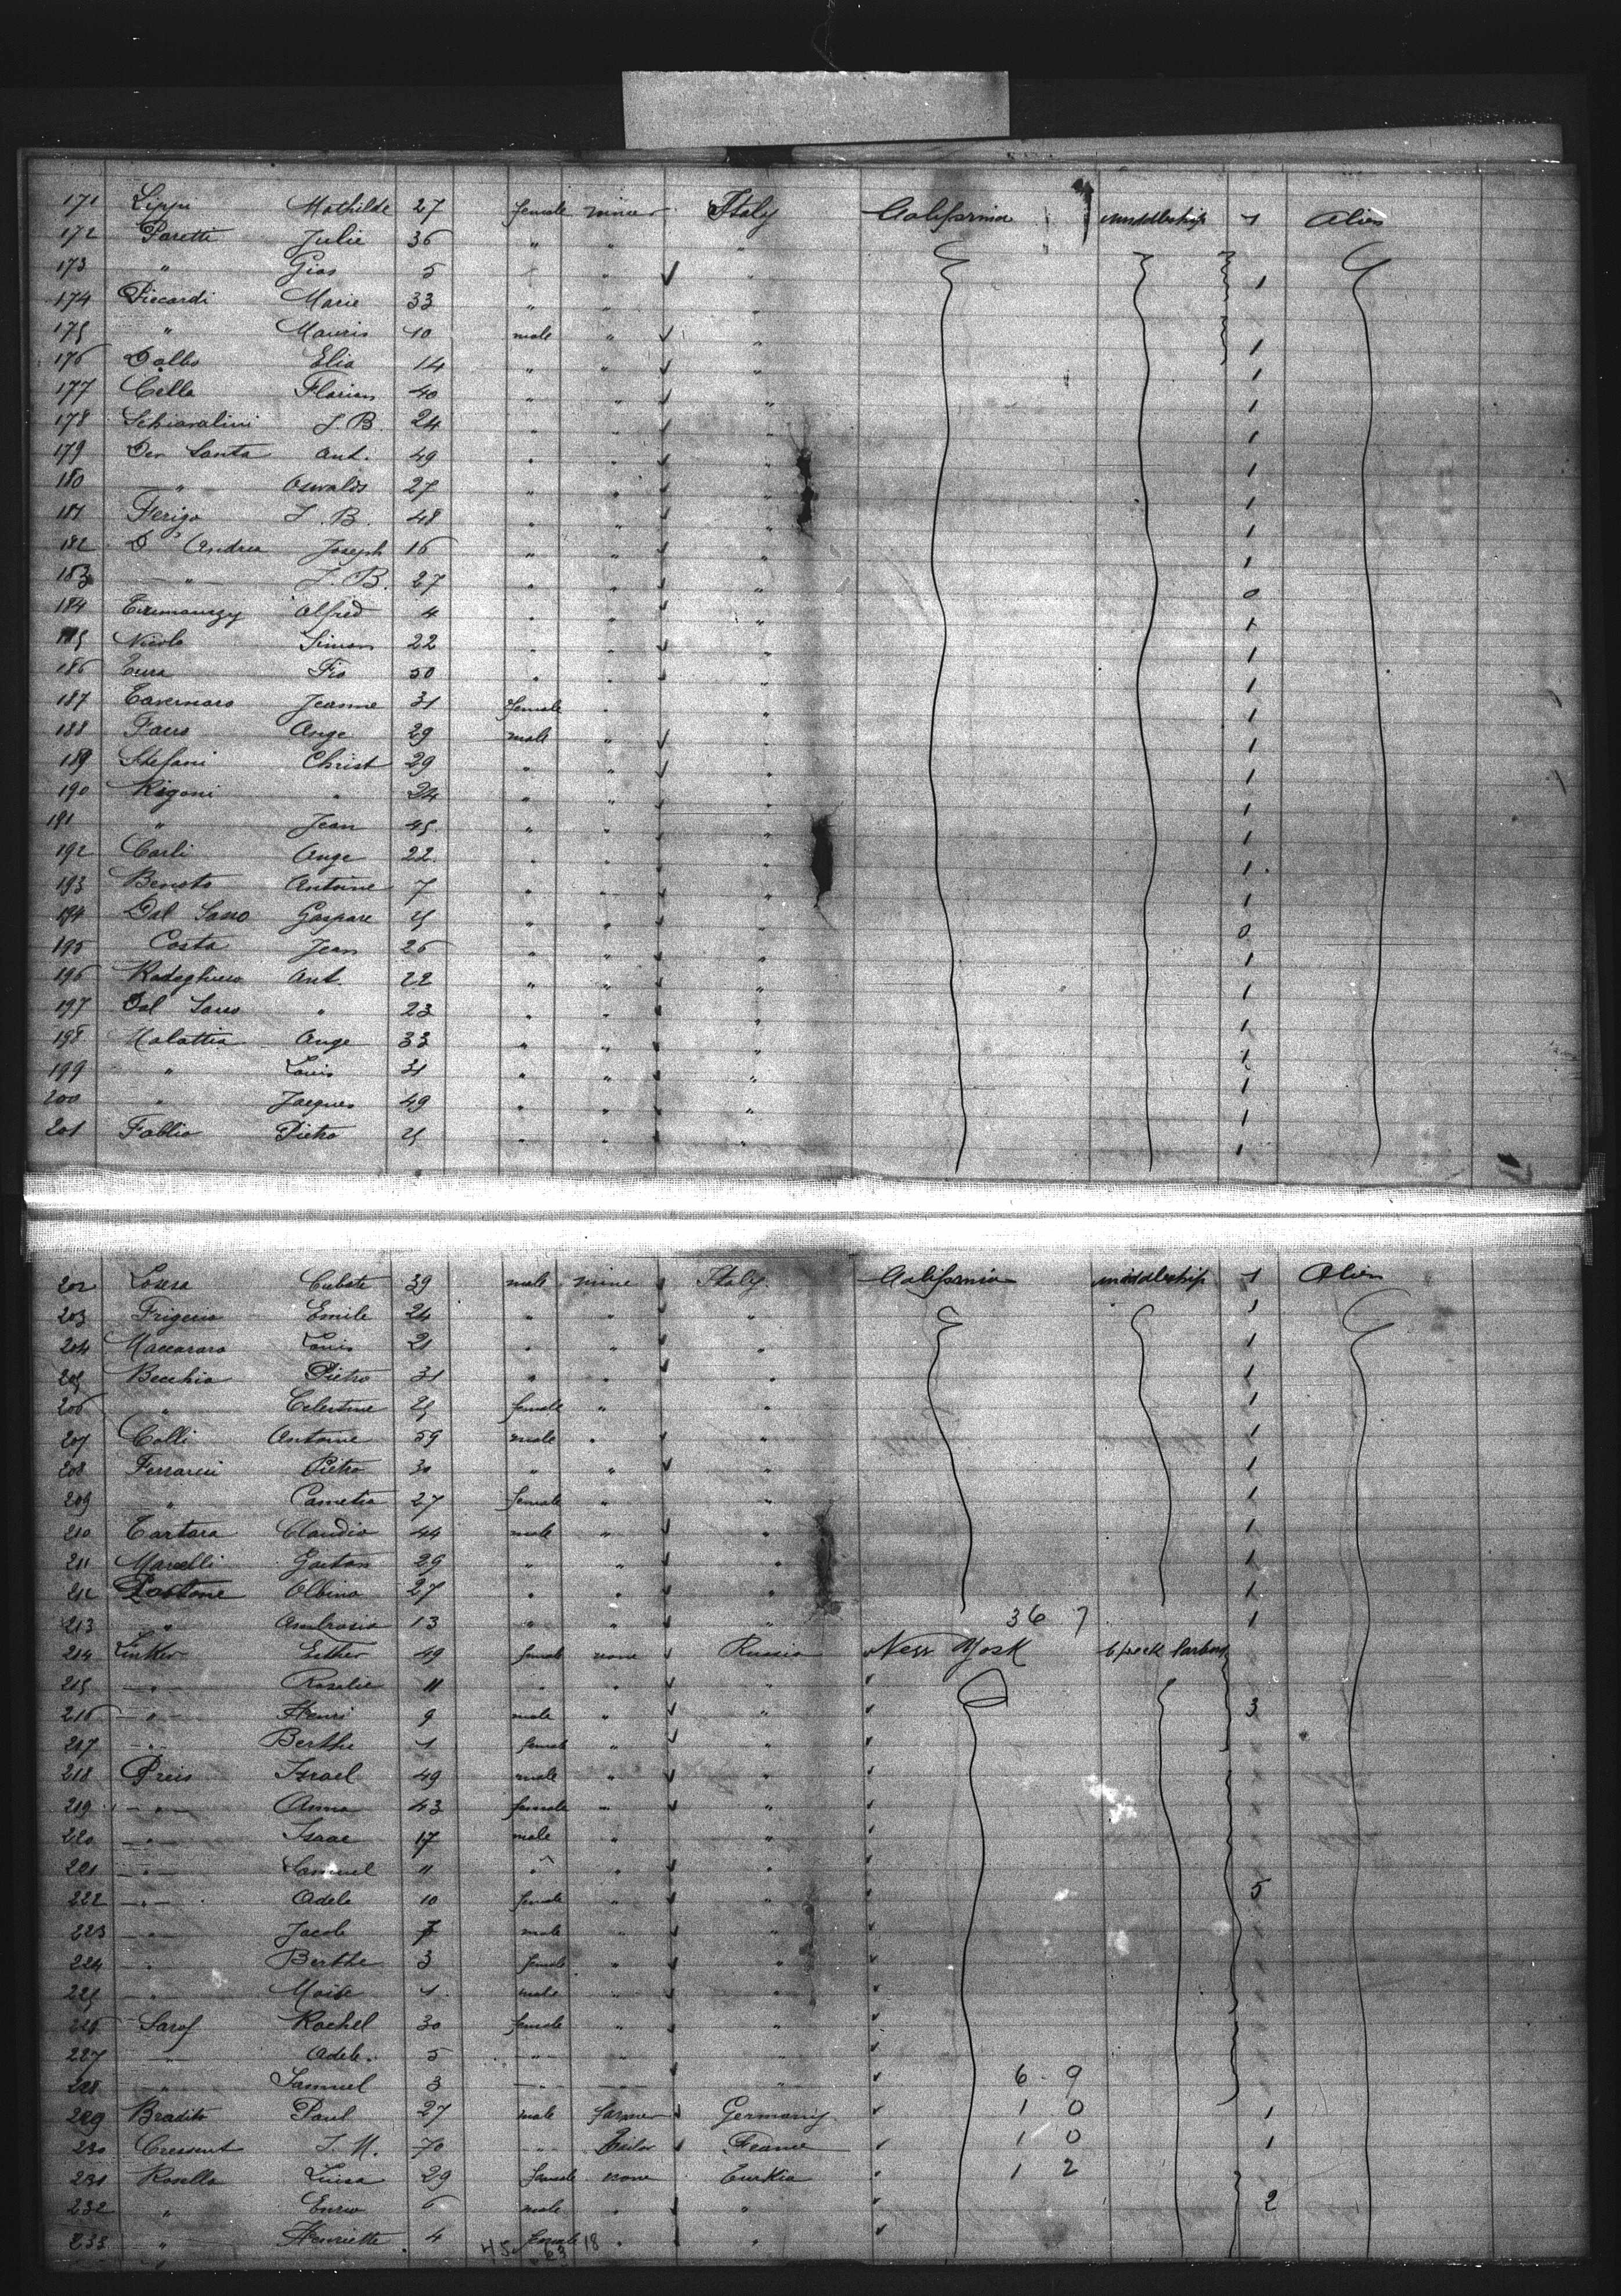 171 Lippi Mathilde 27 female miner Italy California middleship 1 Alien
172 Paretti Julie 36 " " "
173 " Gios 5 " " 1
174 Piccardi Marie 33 " " "
175 " Mauris 10 male " " 1
176 Dalbo Elia 14 " " " 1
177 Cella Florian 40 " " " 1
178 Schiavalini J. B. 24 " " " 1
179 Der Santa Ant. 49 " " " 1
180 " Oswalds 27 " " " 1
181 Ferigo J. B. 48 " " " 1
182 D'Andrea Joseph 16 " " " 1
183 " J. B. 27 " " " 0
184 Alfred 4 " " " 1
185 Nicola Simon 22 " " " 1
186 Fio 50 " " " 1
187 Tavernaro Jeanne 31 female " " 1
188 Ange 29 male " " 1
189 Stefani Christ 29 " " " 1
190 Rigoni " 24 " " " 1
191 " Jean 45 " " " 1
192 Carli Ange 22 " " " 1
193 Antoine 7 " " " 1
194 Dal Sasso Gaspare 25 " " " 0
195 Costa Jean 26 " " " 1
196 Radeghiero Ant. 22 " " " 1
197 Dal Sasso " 23 " " " 1
198 Malattia Ange 33 " " " 1
199 " Louis 31 " " " 1
200 " Jacques 49 " " " 1
201 Fabbio Pietro 25 " " " 1
202 Cubete 39 male mine Italy. California middleship 1 Alien
203 Frigerio Emile 24 " " " 1
204 Maccararo Louis 21 " " " 1
205 Becchio Pietro 31 " " " 1
206 " Celestine 25 female " " 1
207 Colli Antoine 59 male " " 1
208 Pietro 30 " " " 1
209 " 27 female " " 1
210 Tartara Claudio 44 male " " 1
211 Gaetan 29 " " " 1
212 Albino 27 " " " 1
213 " Ambrosio 13 " " " 36 7 1
214 Linker Esther 49 female none Russia New York
215 " Rosalie 11 " " "
216 " Henri 9 male " " 3
217 " Berthe 1 female " "
218 Preis Israel 49 male " "
219 " Anna 43 female " "
220 " Isaac 17 male " "
221 " Samuel 11 " " "
222 " Adele 10 female " " 5
223 " Jacob 7 male " "
224 " Berthe 3 female " "
225 " Moise 1 male " "
226 Saraf Rachel 30 female " "
227 " Adele 5 " " "
228 " Samuel 3 " " " 6 9
229 Paul 27 male farmer Germany 1 0 1
230 Cressent J. M. 70 " Tailor France 1 0 1
231 Rosella Luisa 29 female none Turkia 1 2
232 " Enrico 6 male " " 2
233 " Henriette 4 female " "
45 63 18